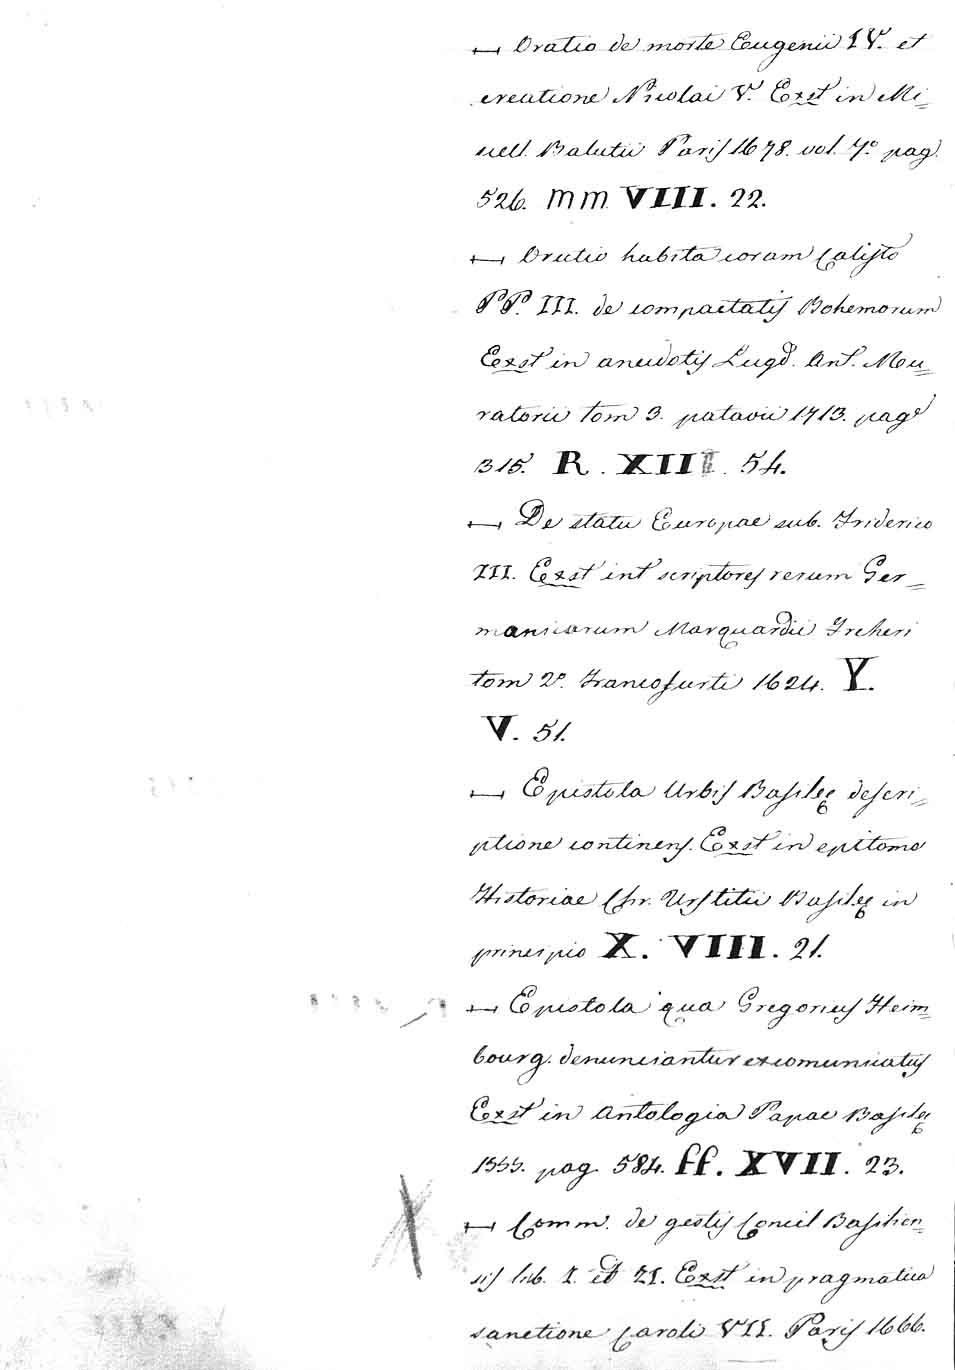 ⊢⊣ Oratio de morte Eugenii IV. et
creatione Nicolai V. Exst in Mi=
scell. Balutii Paris 1678. vol. 7º pag.
526. mm VIII. 22.
⊢⊣ Oratio habita coram Calisto
PP. III. de compactatis Bohemorum
Exst in anecdotis Lugd. Ant. Mu=
ratorii tom 3. patavii 1713. page
315. R. XIII. 54.
⊢⊣ De statu Europae sub. Friderico
III. Exst int scriptores rerum Ger=
manicarum Marquardii Freheri
tom 2º. Francofurti 1624. Y.
V. 51.
⊢⊣ Epistola Urbis Basileę descri=
ptione continens. Exst in epitome
Historiae Chr. Urstitii Basileę in
principio X. VIII. 21.
⊢⊣ Epistola qua Gregorius Heim=
bourg. denunciantur excomunicatus
Exst in Antologia Papae Basileę
1555. pag. 584. ff. XVII. 23.
⊢⊣ Comm. de gestis Concil Basilien=
sis lib. I. et II. Exst in pragmatica
sanctione Caroli VII. Paris 1666.